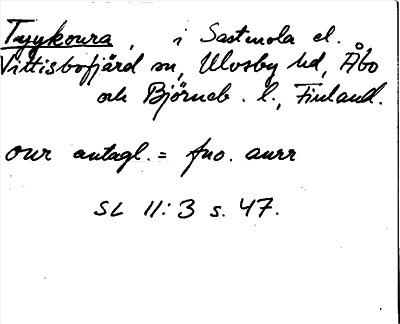 Tyykoura, i Sastmola el.
Vittisbofjärd sn, Ulvsby hd, Åbo
och Björneb. l., Finland.
our antagl. = fno. aurr
SL 11:3 s. 47.